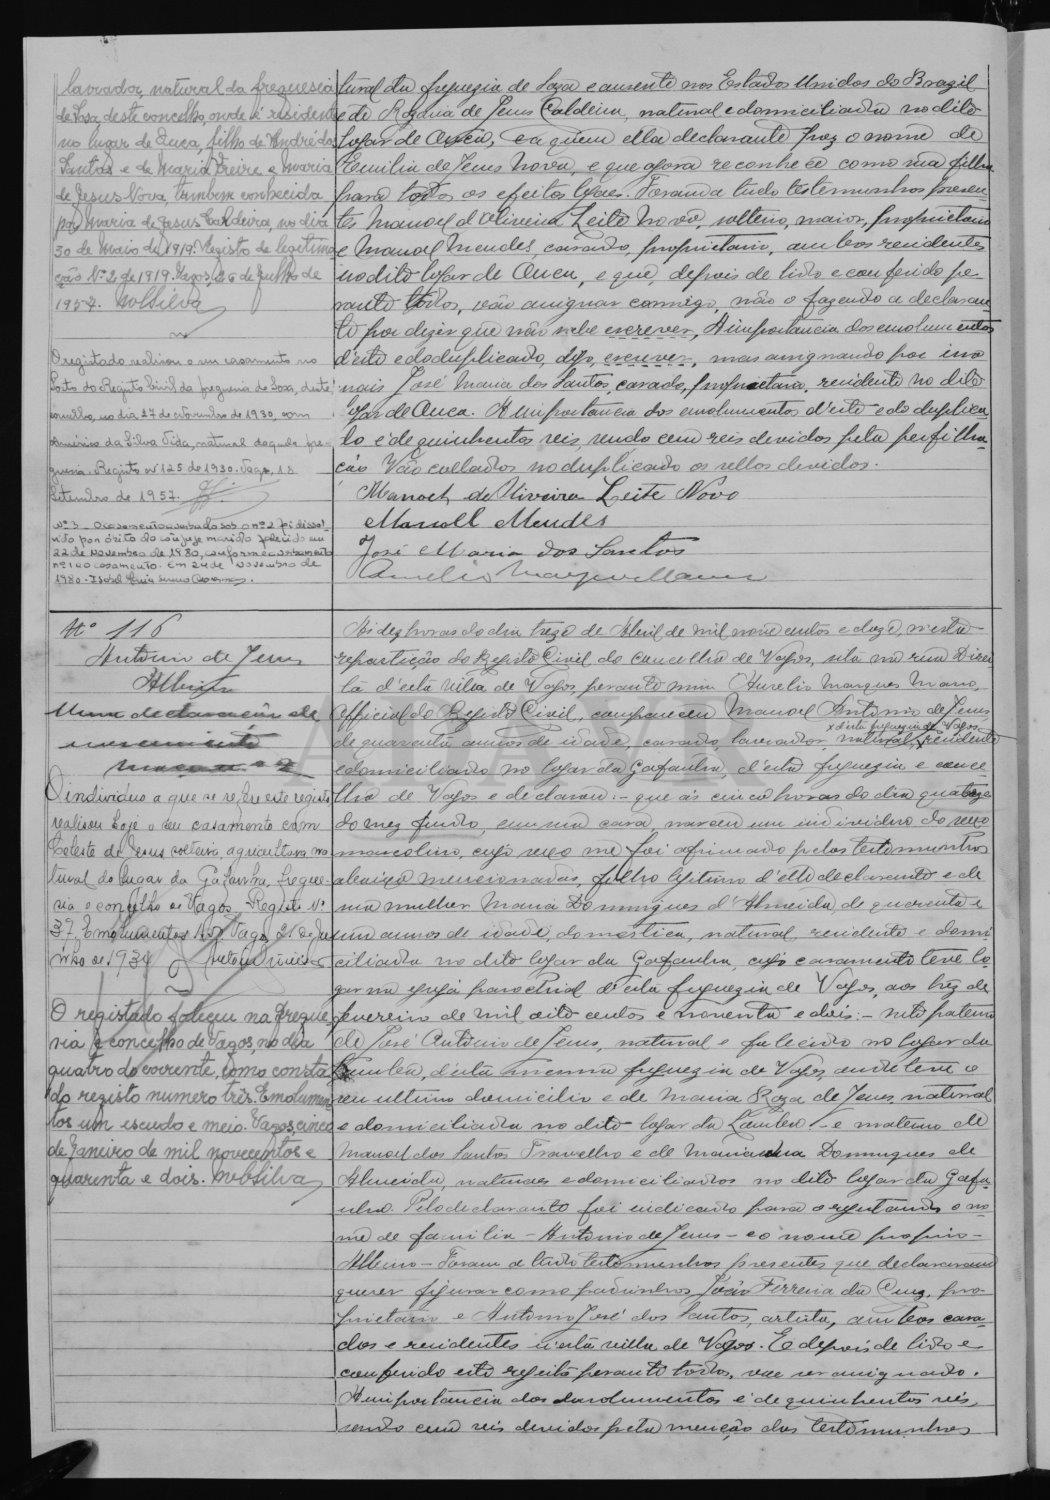 lavrador, natural da freguesia
de Soza, deste concelho, onde é residente
no lugar de Ouca, filho de André dos
Santos e de Maria Freire e Maria
de Jesus Nova, tambem conhecida
por Maria de Jesus Caldeira, no dia
30 de Maio de 1919. Registo de legitima
ção Nº 2 de 1919. Vagos, 26 de Julho de
1957.
O registado realisou o seu casamento no
Posto do Registo Civil da freguesia de Soza, deste
concelho, no dia 27 de setembro de 1930, com
da Silva Vida, natural daquela fre-
guesia. Registo nº 125 de 1930. Vagos, 18
Setembro de 1957.
Nº 3 - O casamento averbado sob o nº 2 foi dissol-
vido por óbito do conjuge marido falecido em
22 de Novembro de 1980, conforme averbamento
nº 1 ao casamento. Em 24 de Novembro de
1980.
tural da freguezia de Soza e ausente nos Estados Unidos do Brazil
e de Rozaria de Jesus Caldeira, natural e domiciliada no dito
logar de Ouca, e a quem ella declarante poz o nome de
Emilia de Jesus Nova, e que agora reconhece como sua filha
para todos os efeitos legaes. Foram a tudo testemunhas presen-
tes Manoel d'Oliveira Leite Novo, solteiro, maior, proprietario
e Manoel Mendes, casado, proprietario, ambos residentes
no dito logar de Ouca, e que, depois de lido e conferido pe-
rante todos, vão assignar commigo, não o fazendo a declaran-
te por dizer que não sabe escrever, A importancia dos emolumentos
d'este e do duplicado, digo, escrever, mas assignando por
José Maria dos Santos, casado, proprietario, residente no dito
logar de Ouca. A importancia dos emolumentos d'este e do duplica-
do é de quinhentos reis, sendo cem reis devidos pela perfilha-
ção Vão collados no duplicado os sellos devidos.
Manoel de Oliveira Leite Novo
Manoell Mendes
José Maria dos Santos
Nº 116
Antonio de Jesus
Albino
Uma declaração de
nascimento
O individuo a que se refere este registo
realisou hoje o seu casamento com
Celeste de Jesus solteira, agricultora, na
tural do lugar da Gafanha, fregue-
sia e concelho de Vagos. Registo Nº
37. Emolumentos 1$50. Vagos, 21 de Ju
nho de 1934
O registado faleceu na fregue-
sia e concelho de Vagos, no dia
quatro do corrente, como consta
do registo numero três. Emolumen
tos um escudo e meio. Vagos, cinco
de Janeiro de mil novecentos e
quarenta e dois.
Ás dez horas do dia treze de Abril de mil nove centos e doze, n'esta
repartição do Registo Civil do concelho de Vagos, sita na rua Direi-
ta d'esta villa de Vagos, perante mim Aurelio Marques Mano,
official do Registo Civil, compareceu Manoel Antonio de Jesus,
x d'esta freguezia de Vagos
de quarenta annos de idade, casado, lavrador, natural, x residente
e domiciliado no logar da Gafanha, d'esta freguezia e conce-
lho de Vagos e declarou:- que ás cinco horas do dia quatorze
do mez findo, em sua casa, nasceu um individuo do sexo
masculino, cujo sexo me foi afirmado pelas testemunhas
abaixo mencionadas, filho legitimo d'elle declarante e de
sua mulher Maria Domingues d'Almeida, de quarenta e
um annos de idade, domestica, natural, residente e domi
ciliada no dito logar da Gafanha, cujo casamento teve lo-
gar na igreja parochial d'esta freguezia de Vagos, aos trez de
fevereiro de mil oito centos e noventa e dois:- neto paterno
de José Antonio de Jesus, natural e falecido no logar da
d'esta mesma freguezia de Vagos, onde teve o
seu ultimo domicilio e de Maria Roza de Jesus, natural
e domiciliada no dito logar da - e materno de
Manoel dos Santos e de Domingues de
Almeida, naturaes e domiciliados no dito logar da Gafa-
nha. Pelo declarante foi indicado para o registando o no-
me de familia - Antonio de Jesus - e o nome proprio -
Albino - Foram a tudo testemunhas presentes que declararam
querer figurar como padrinhos João Ferreira da Cruz, pro-
prietario e Antonio José dos Santos, artista, ambos casa-
dos e residentes n'esta villa de Vagos. E depois de lido e
conferido este registo perante todos, vae ser assignado.
A importancia dos emolumentos é de quinhentos reis,
sendo cem reis devidos pela menção das testemunhas